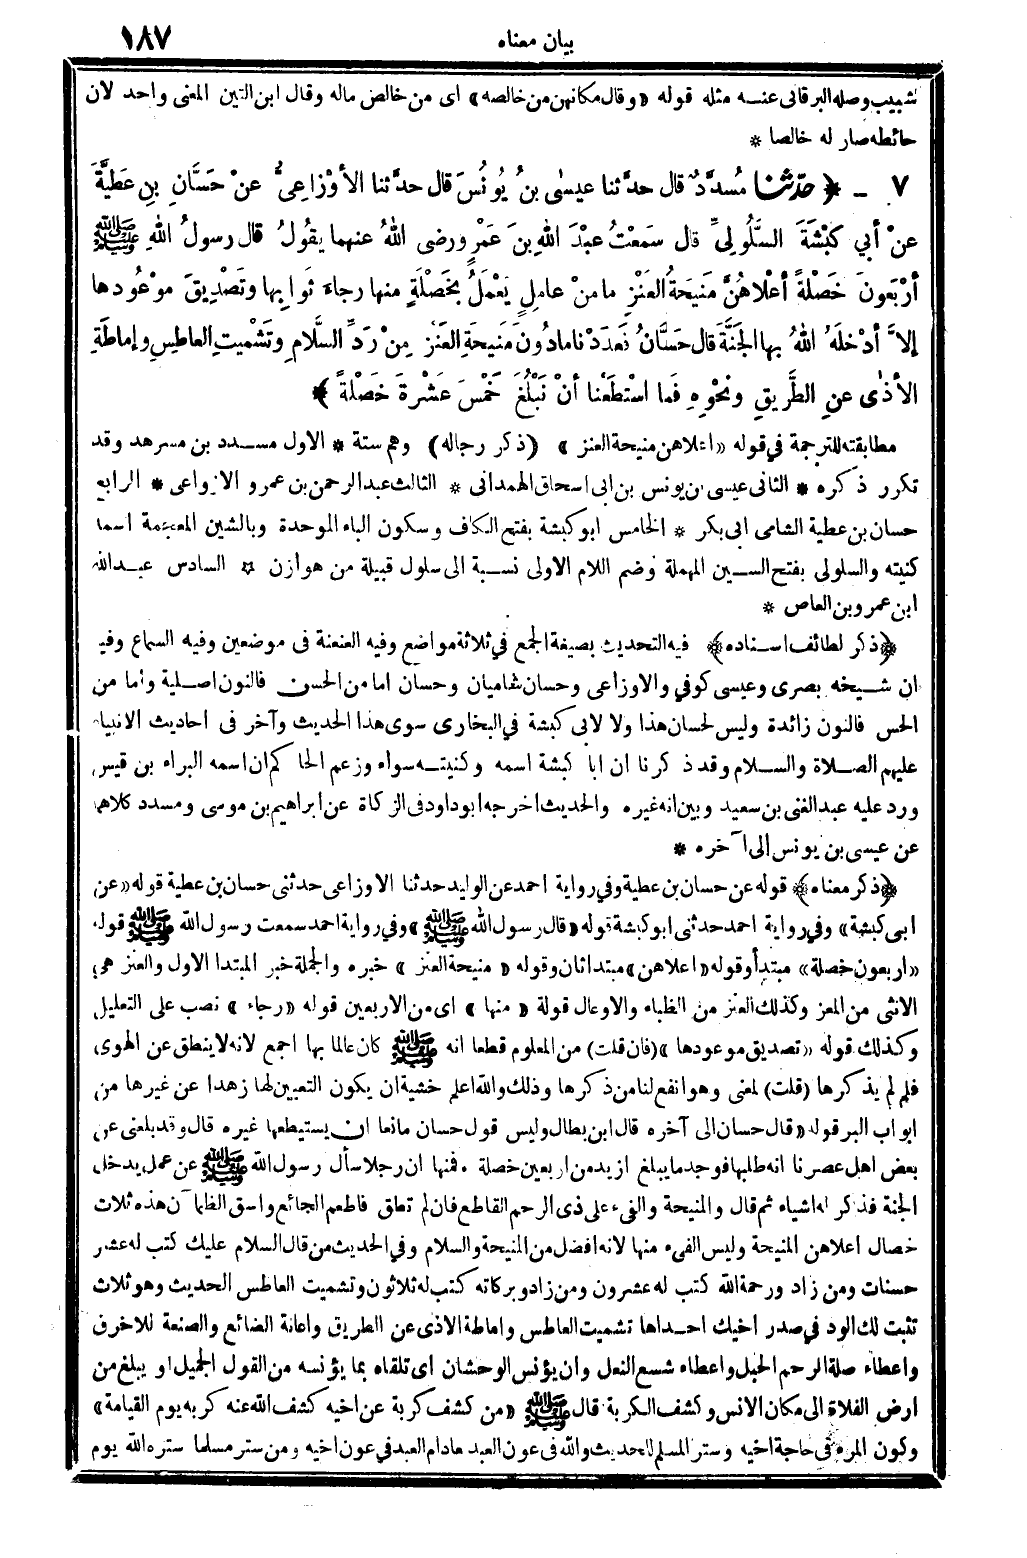 بيان معناه ١٨٧
شبيب وصله البرقانى عنه مثله قوله «وقال مكانهن من خالصه» اى من خالص ماله وقال ابن التين المعنى واحد لان
حائطه صار له خالصا *
٧ - ﴿ حَدَّثَنَا مُسَدَّدٌ قال حدَّثنا عيسٰى بنُ يُونُسَ قال حدَّثنا الأَوْزاعِىُّ عنْ حَسَّانِ بنِ عَطِيَّةَ
عنْ أبي كَبْشَةَ السَّلُولىِّ قال سَمِعْتُ عبْدَ اللهِ بنَ عَمْرٍو رضى اللهُ عنهما يقولُ قال رسولُ اللهِ ﷺ
أرْبَعونَ خَصْلةً أعْلاهُنَّ مَنِيحَةُ العَنْزِ ما منْ عاملٍ يَعْمَلُ بخَصْلةٍ منها رجاءَ ثَوابِها وتَصْدِيقَ موْعُودها
إلاَّ أدْخلَهُ اللهُ بها الجَنَّةَ قال حَسَّانُ فَعَدَدْنا ما دُونَ مَنيحةِ العَنْزِ مِنْ رَدِّ السَّلامِ وتَشْميتِ العاطِسِ وإماطَةِ
الأذٰى عنِ الطَّريقِ ونحْوِهِ فَما اسْتطَعْنا أنْ نَبْلُغَ خَمْسَ عَشْرةَ خَصْلةً ﴾
مطابقته للترجمة في قوله «اعلاهن منيحة العنز» (ذكر رجاله) وهم ستة * الاول مسدد بن مسرهد وقد
تكرر ذكره * الثانى عيسى بن يونس بن ابى اسحاق الهمدانى * الثالث عبد الرحمن بن عمرو الاوزاعى * الرابع
حسان بن عطية الشامى ابى بكر * الخامس ابو كبشة بفتح الكاف وسكون الباء الموحدة وبالشين المعجمة اسمه
كنيته والسلولى بفتح السين المهملة وضم اللام الاولى نسبة الى سلول قبيلة من هوازن * السادس عبد الله
ابن عمرو بن العاص *
﴿ذكر لطائف اسناده﴾ فيه التحديث بصيغة الجمع في ثلاثة مواضع وفيه العنعنة فى موضعين وفيه السماع وفيه
ان شيخه بصرى وعيسى كوفي والاوزاعى وحسان شاميان وحسان اما من الحسن فالنون اصلية واما من
الحس فالنون زائدة وليس لحسان هذا ولا لابى كبشة في البخارى سوى هذا الحديث وآخر فى احاديث الانبياء
عليهم الصلاة والسلام وقد ذكرنا ان ابا كبشة اسمه وكنيته سواء وزعم الحاكم ان اسمه البراء بن قيس
ورد عليه عبد الغنى بن سعيد وبين انه غيره والحديث اخرجه ابو داود فى الزكاة عن ابراهيم بن موسى ومسدد كلاهما
عن عيسى بن يونس الى آخره *
﴿ذكر معناه﴾ قوله عن حسان بن عطية وفي رواية احمد عن الوليد حدثنا الاوزاعى حدثنى حسان بن عطية قوله «عن
ابى كبشة» وفي رواية احمد حدثنى ابو كبشة قوله «قال رسول الله ﷺ» وفى رواية احمد سمعت رسول الله ﷺ قوله
«اربعون خصلة» مبتدأ وقوله «اعلاهن» مبتدا ثان وقوله «منيحة العنز» خبره والجملة خبر المبتدا الاول والعنز هى
الانثى من المعز وكذلك العنز من الظباء والاوعال قولة «منها» اى من الاربعين قوله «رجاء» نصب على التعليل
وكذلك قوله «تصديق موعودها» (فان قلت) من المعلوم قطعا انه ﷺ كان عالما بها اجمع لانه لا ينطق عن الهوى
فلم لم يذكرها (قلت) لمعنى وهو انفع لنا من ذكرها وذلك والله اعلم خشية ان يكون التعيين لها زهدا عن غيرها من
ابواب البر قوله «قال حسان الى آخره قال ابن بطال وليس قول حسان مانعا ان يستيطعها غيره قال وقد بلغنى عن
بعض اهل عصرنا انه طلبها فوجد ما يبلغ ازيد من اربعين خصلة * فمنها ان رجلا سأل رسول الله ﷺ عن عمل يدخل
الجنة فذكر له اشياء ثم قال والمنيحة والفىء على ذى الرحم القاطع فان لم تطق فاطعم الجائع واسق الظمآن هذه ثلاث
خصال اعلاهن المنيحة وليس الفىء منها لانه افضل من المنيحة والسلام وفى الحديث من قال السلام عليك كتب له عشر
حسنات ومن زاد ورحمة الله كتب له عشرون ومن زاد وبركاته كتب له ثلاثون وتشميت العاطس الحديث وهو ثلاث
تثبت لك الود في صدر اخيك احداها تشميت العاطس واماطة الاذى عن الطريق واعانة الضائع والصنعة للاخرق
واعطاء صلة الرحم الحبل واعطاء شسع النعل وان يؤنس الوحشان اى تلقاه بما يؤنسه من القول الجميل او يبلغ من
ارض الفلاة الى مكان الانس وكشف الكربة قال ﷺ «من كشف كربة عن اخيه كشف الله عنه كربه يوم القيامة»
وكون المرء فى حاجة اخيه وستر المسلم للحديث والله فى عون العبد مادام العبد في عون اخيه ومن ستر مسلما ستره الله يوم